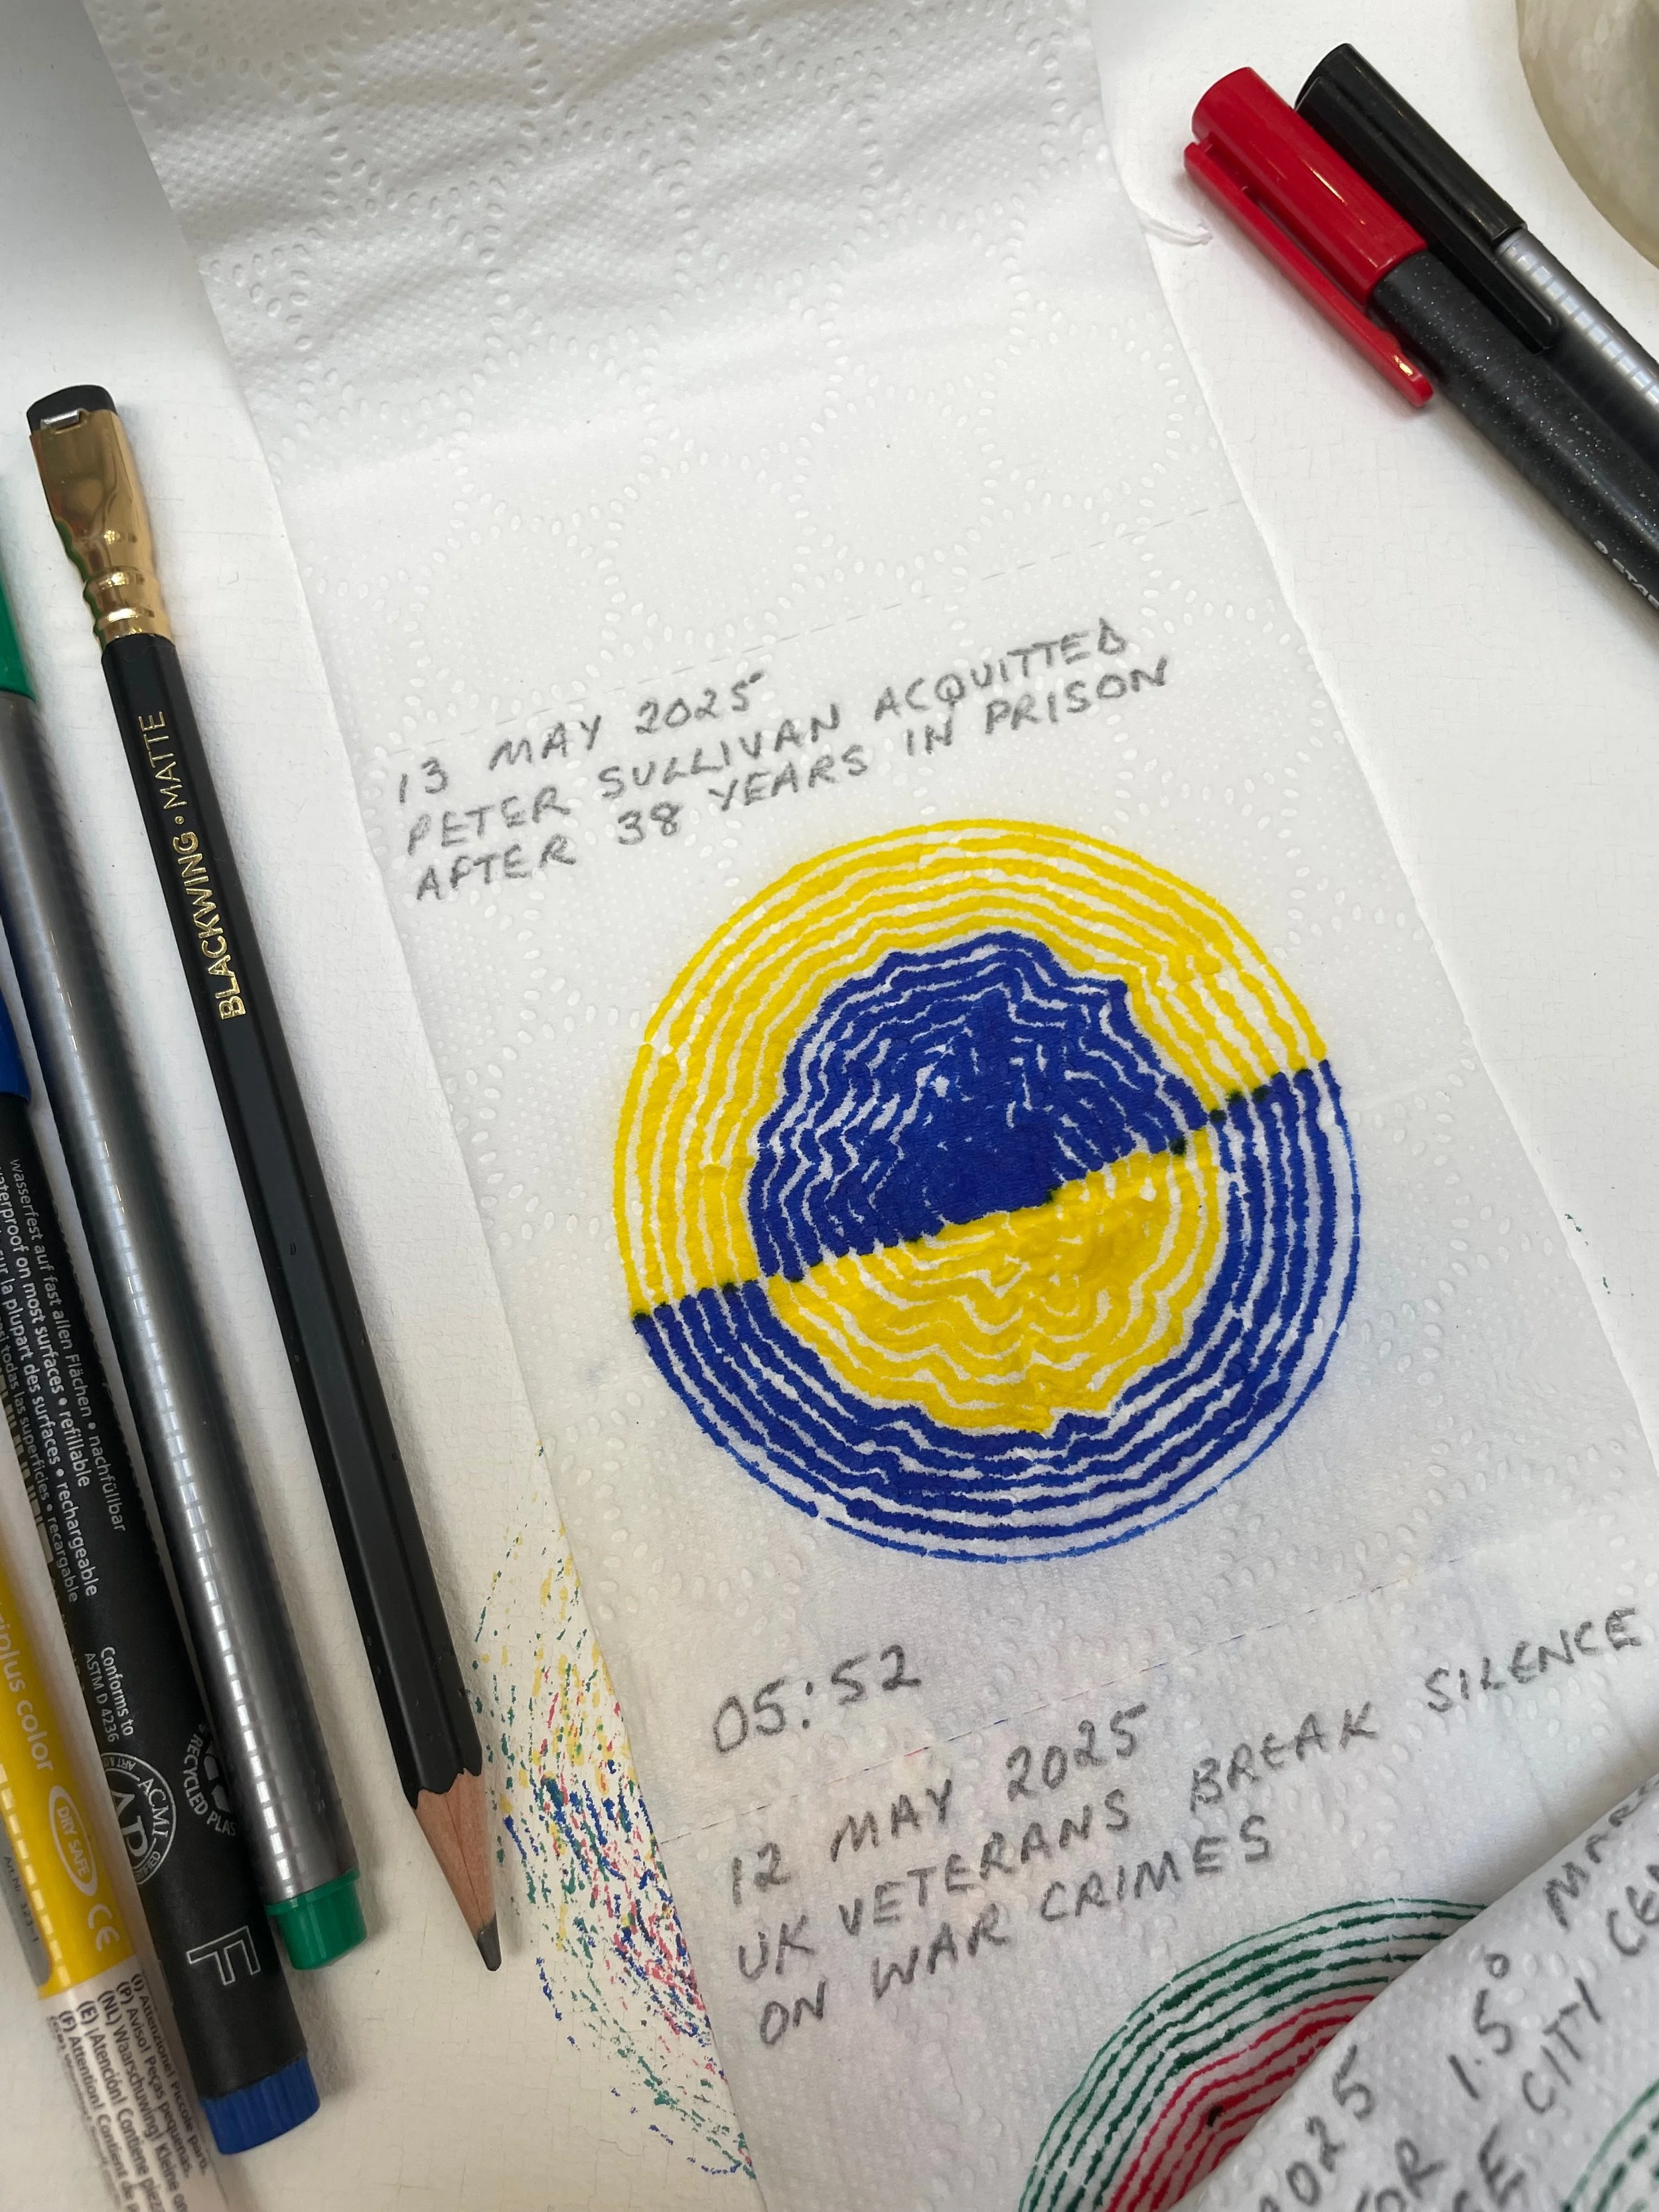 13 MAY 2025
PETER SULLIVAN ACQUITTED
AFTER 38 YEARS IN PRISON
05:52
12 MAY 2025
UK VETERANS BREAK SILENCE
ON WAR CRIMES
1.5°
CITY
BLACKWING • MATTE
wasserfest auf fast allen Flächen • nachfüllbar
waterproof on most surfaces • refillable
sur la plupart des surfaces • rechargeable
todas las superficies • recargable
Conforms to
ASTM D 4236
ACMI
AP
RECYCLED
F
color
DRY SAFE
CE
(I) Attenzione! Piccole
(P) Aviso! Peças pequenas.
(NL) Waarschuwing! Kleine
(E) ¡Atención! Contiene
(F) Attention! Contient de